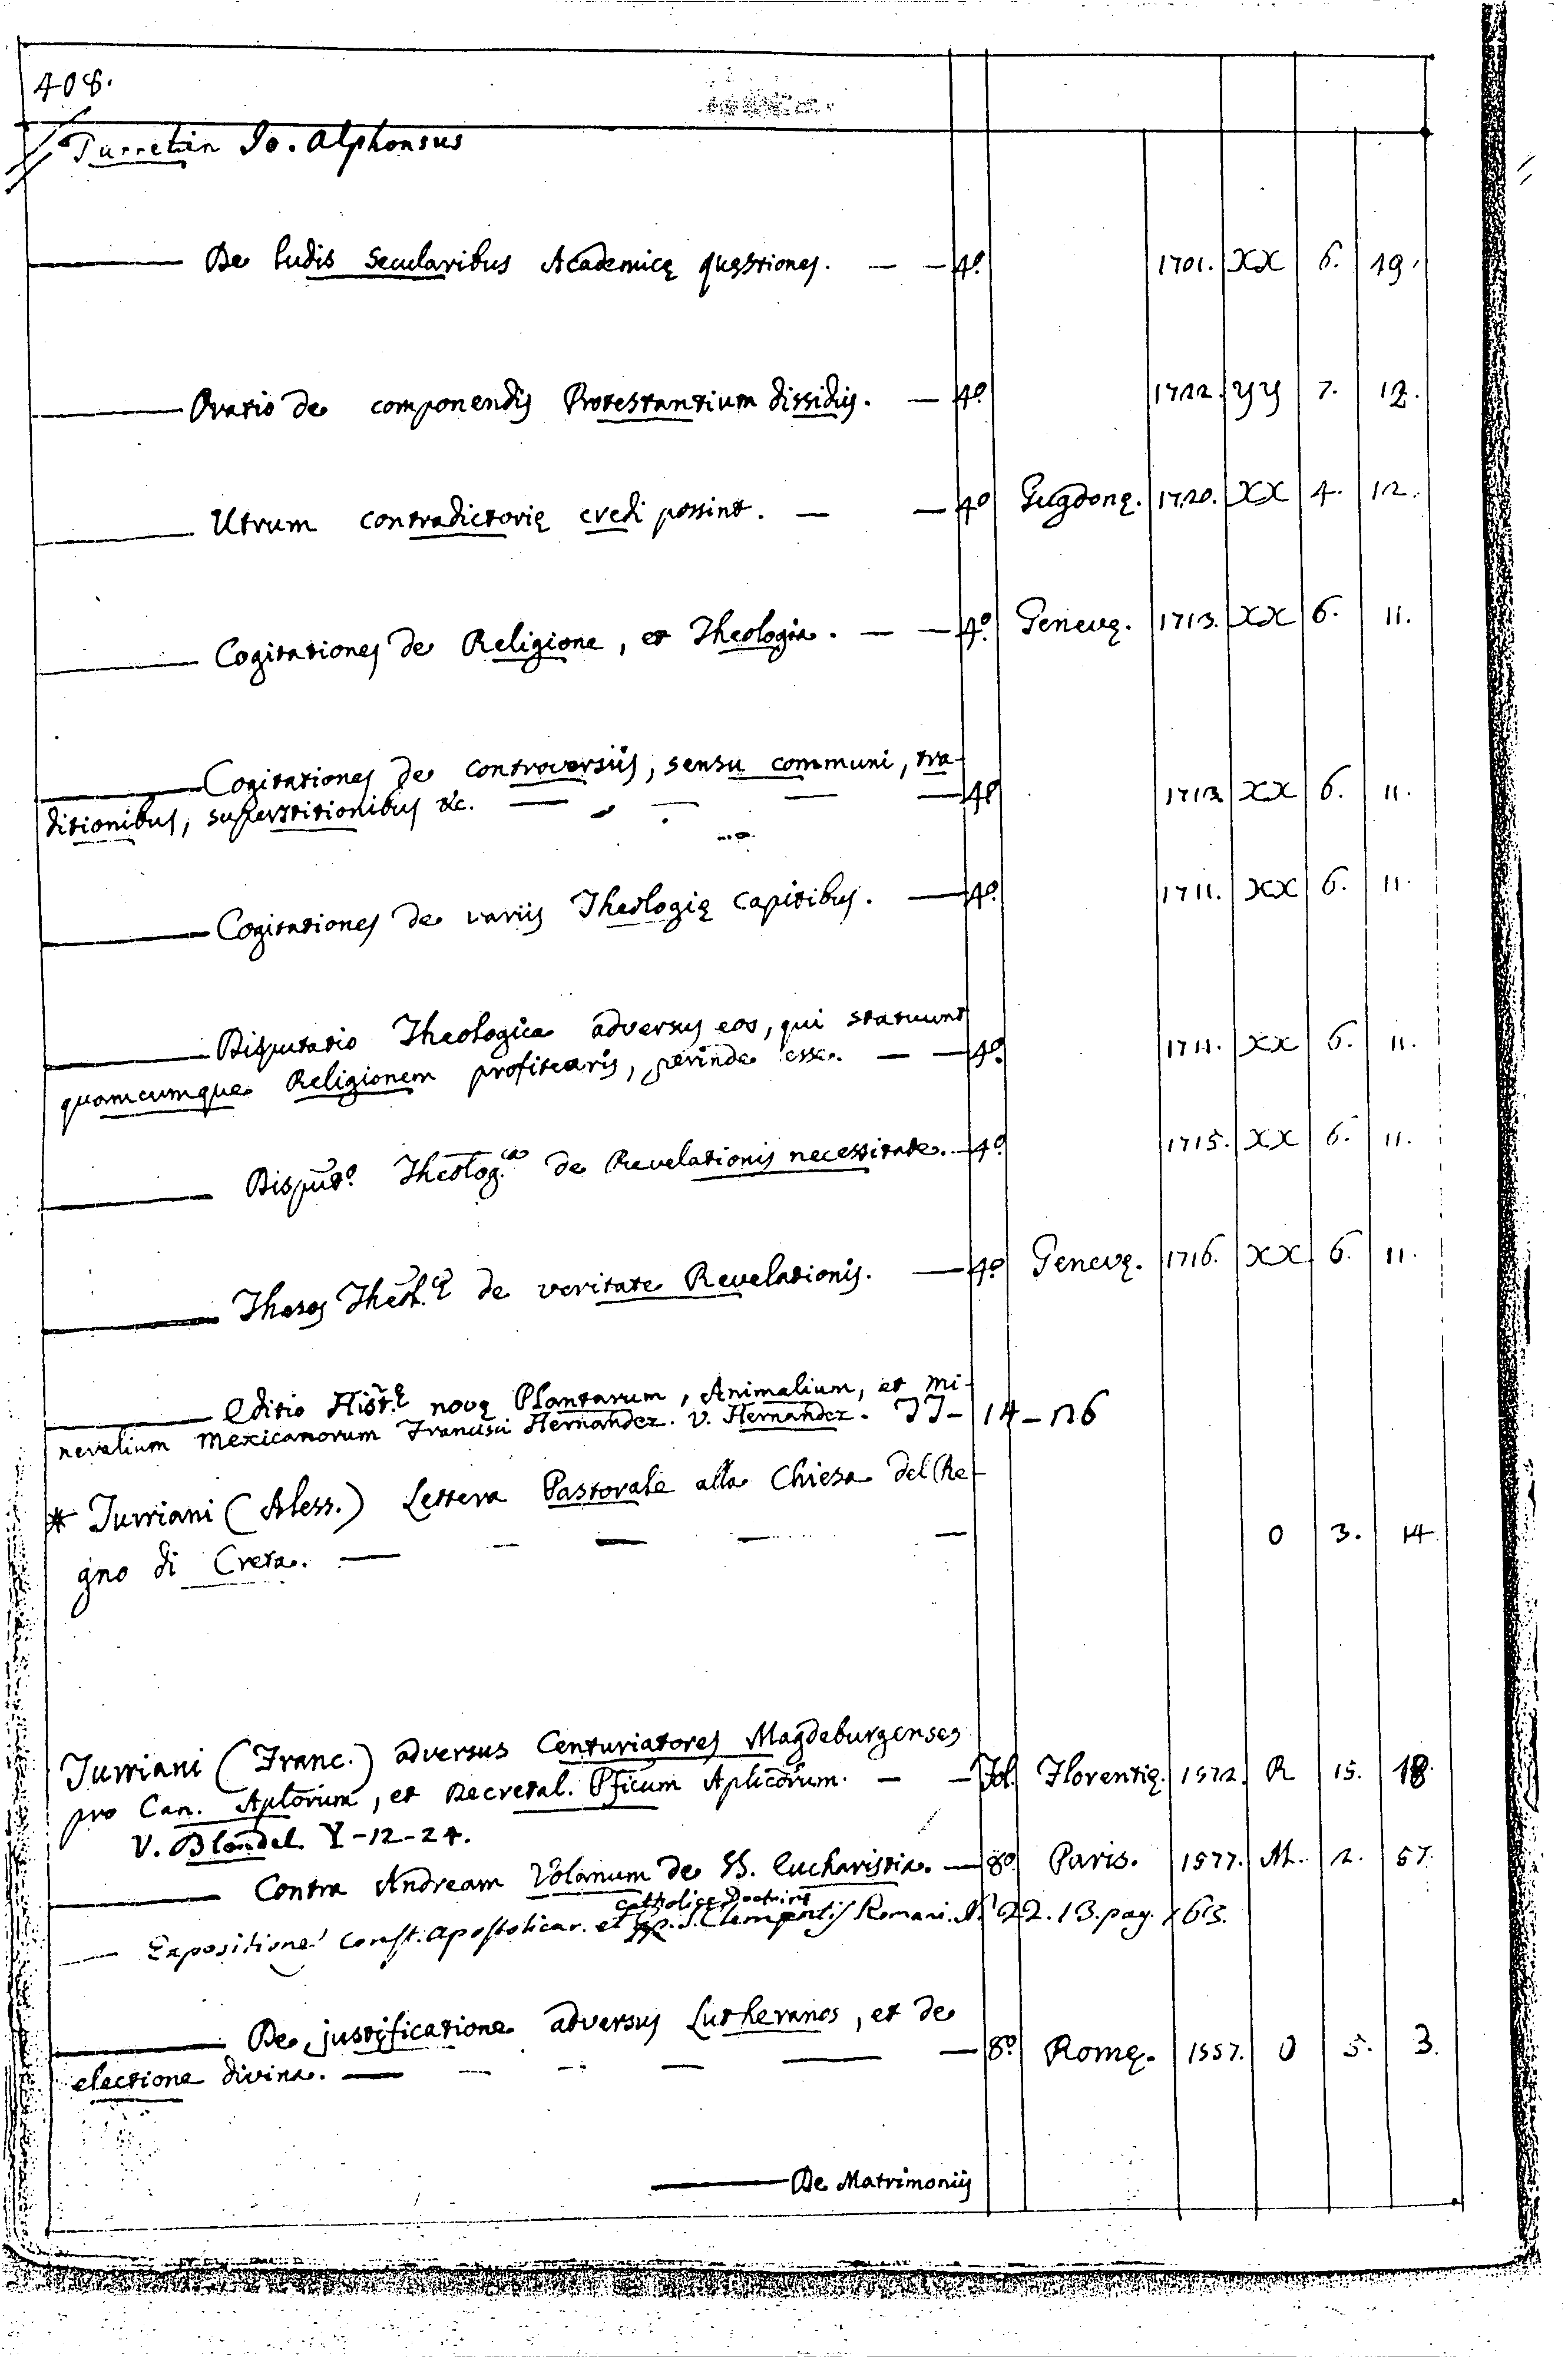 408.
Turretin Io. Alphonsus
De ludis Secularibus Academicę quęstiones. — — 4º 1701. XX 6. 19.
Oratio de componendis Protestantium dissidiis. — 4º 1722. YY 7. 12.
Utrum contradictorię credi possint. — — 4º Lugdonę. 1720. XX 4. 12.
Cogitationes de Religione, et Theologia. — — 4º Genevę. 1713. XX 6. 11.
Cogitationes de controversiis, sensu communi, tra-
ditionibus, superstitionibus &c. — — — — 4º 1713 XX 6. 11.
Cogitationes de variis Theologię capitibus. — 4º 1711. XX 6. 11.
Disputatio Theologica adversus eos, qui statuunt
quamcumque Religionem profitearis, perinde esse. — — 4º 1711. XX 6. 11.
Disputº. Theolog.ca de Revelationis necessitate. — 4º 1715. XX 6. 11.
Theses Theol.cę de veritate Revelationis. — 4º Genevę. 1716. XX 6. 11.
Editio Hist.ę novę Plantarum, Animalium, et mi-
neralium Mexicanorum Francisci Hernandez. V. Hernandez. II - 14 - n 6
* Turriani (Aless.) Lettera Pastorale alla Chiesa del Re-
gno di Creta. — — — — — O 3. 14
Turriani (Franc.) adversus Centuriatores Magdeburgenses
pro Can. Aplorum, et Decretal. Pficum Aplicorum. — — Fol. Florentię. 1572. R 15. 18.
V. Blondel Y-12-24.
Contra Andream Volanum de SS. Eucharistia. — 8º Paris. 1577. M. 2. 57.
catholicę Doctrine
Expositione Const. apostolicar. et S. Clementis Romani. N 22. 13. pag. 163.
De justificatione adversus Lutheranos, et de
electione divina. — — — — — — 8º Romę. 1557. O 5. 3.
De Matrimoniis